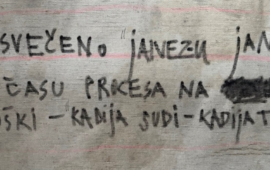 SVEČENO JANEZU JAN
ČASU PROCESA NA
ŠKI - KADIJA SUDI - KADIJA T